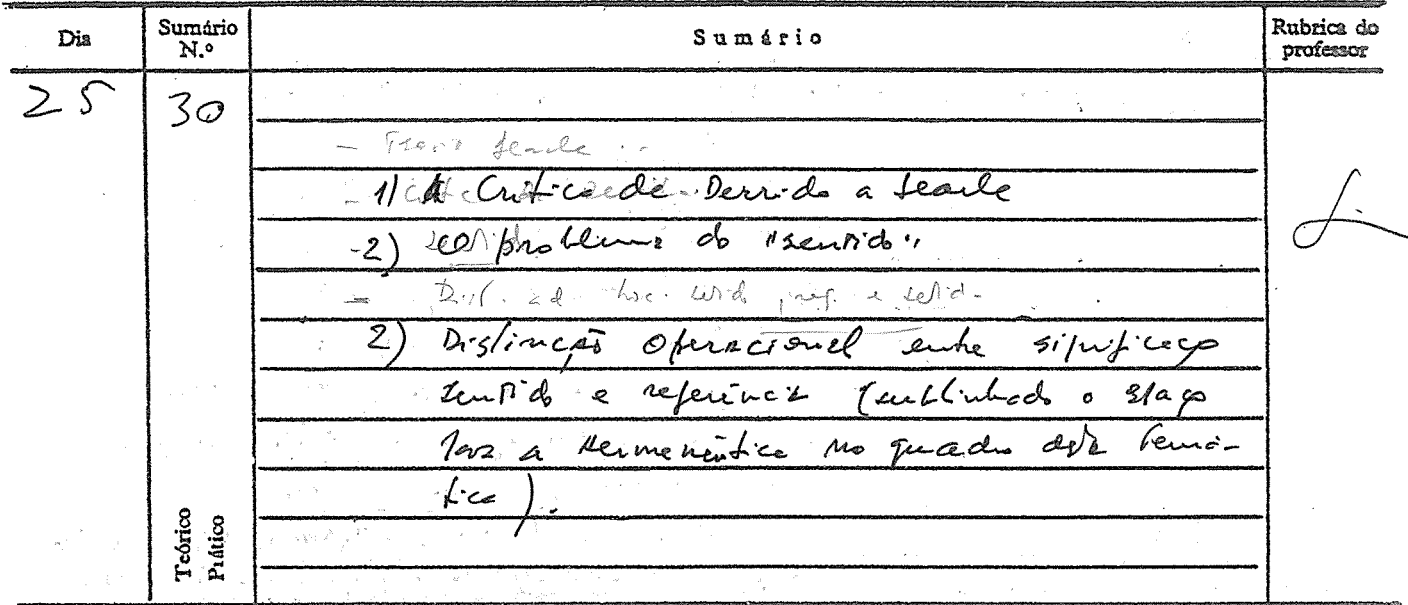 Dia
Sumário N.º
Sumário
Rubrica do professor
25
30
1) A Crítica de Derrida a Searle
2) O problema do "sentido"
2) Distinção Operacional entre significação
sentido e referência (sublinhado o espaço
para a Hermenêutica no quadro desta temá-
tica).
Teórico
Prático